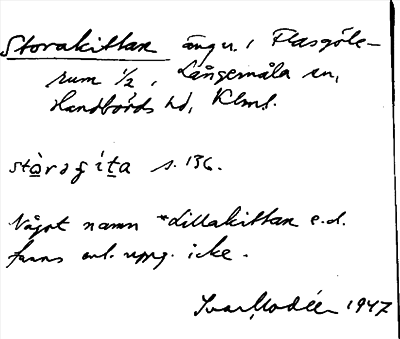 Storakittan äng u. i Flasgöle-
rum 1/2, Långemåla sn,
Handbörds hd, Klms l.
stò̱rə ʃíṯa s. 136.
Något namn *Lillakittan e.d.
fanns enl. uppg. icke.
Ivar Modéer 1947